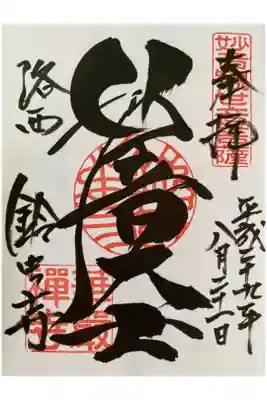 奉拝
平成二十九年
八月二十一日
妙音大士
洛西
鈴虫寺
華嚴
禪寺